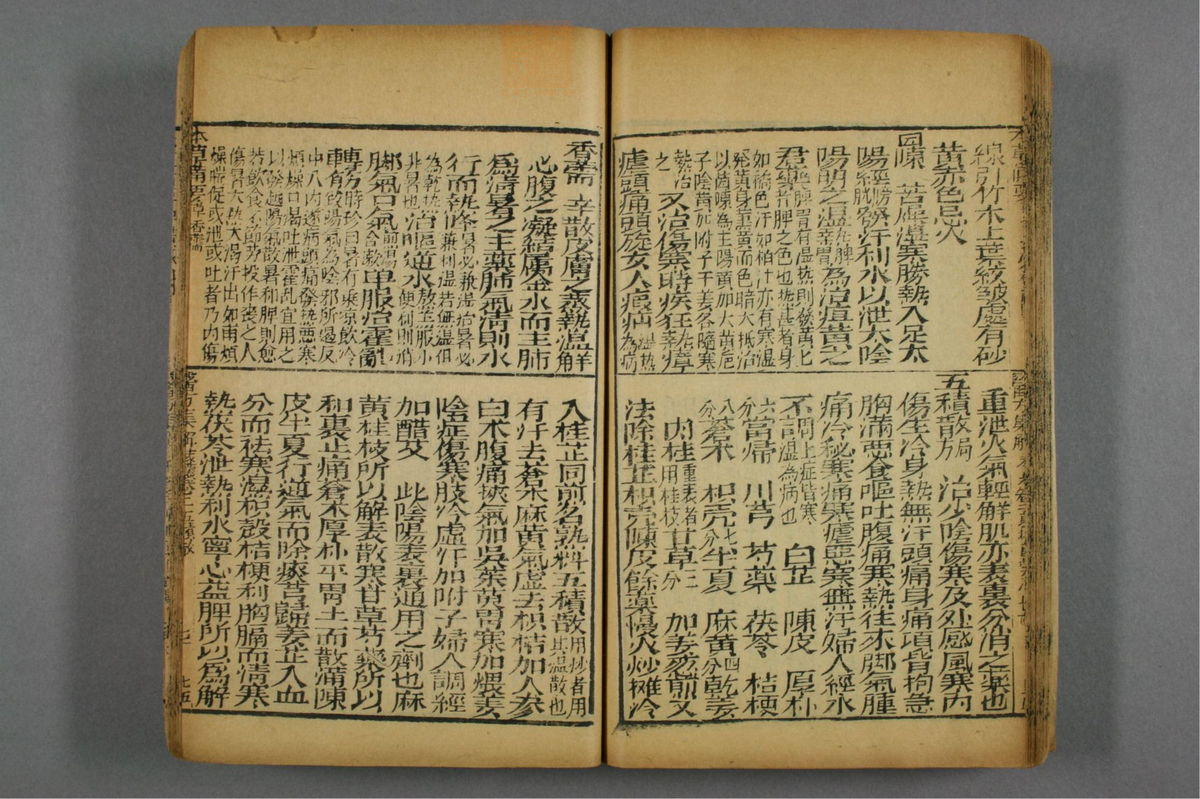 線引竹木上葉綻皺處有砂
黃赤色忌火
茵蔯 苦燥濕寒勝熱入足太
陽經發汗利水以泄太陰
陽明之濕為治疸黃之
君藥脾胃有濕熱則發黃黃
者脾之色也熱甚者身
如橘色汗如柏汁亦有寒濕
發黃身熏黃而色暗大抵治
以茵蔯為主陽黃加大黃梔
子陰黃加附子干姜各隨寒
熱治之 又治傷寒時疾狂熱瘴
瘧頭痛頭旋女人瘕疝濕熱為病
重泄火氣輕解肌亦表裏分消之藥也
五積散局 治少陰傷寒及外感風寒內
傷生冷身熱無汗頭痛身痛項背拘急
胸滿惡食嘔吐腹痛寒熱往來脚氣腫
痛冷秘寒痛寒瘧惡寒無汗婦人經水
不調上症皆寒濕為病也 白芷 陳皮 厚朴
六分當歸 川芎 芍藥 茯苓 桔梗
八分蒼朮 枳壳七分半夏 麻黃四分乾姜
肉桂重表者用桂枝甘草三分 加姜葱煎又
法除桂芷枳壳陳皮餘藥慢火炒攤冷
香薷 辛散皮膚之蒸熱溫解
心腹之凝結屬金水而主肺
為清暑之主藥肺氣清則水
行而熱降暑必兼濕治暑必
兼利濕若無濕但
為乾熱非宜也治嘔逆水
腫熱服小便利則消
脚氣口氣煎湯含漱單服治霍亂
轉筋時珍曰暑有乘涼飲冷
致陽氣為陰邪所遏反
中入內遂病頭痛發熱惡寒
煩燥口渴吐泄霍亂宜用之
以發越陽氣散暑和脾則愈
若飲食不節勞役作喪之人
傷暑大熱大渴汗出如雨煩
燥喘促或泄或吐者乃內傷
入桂芷同煎名熟料五積散用炒者用其溫散也
有汗去蒼朮麻黃氣虛去枳桔加人參
白朮腹痛挾氣加吳茱萸胃寒加煨姜
陰症傷寒肢冷虛汗加附子婦人調經
加醋艾 此陰陽表裏通用之劑也麻
黃桂枝所以解表散寒甘草芍藥所以
和裏止痛蒼朮厚朴平胃土而散滿陳
皮半夏行逆氣而除痰芎歸姜芷入血
分而祛寒濕枳殼桔梗利胸膈而清寒
熱茯苓泄熱利水寧心益脾所以為解